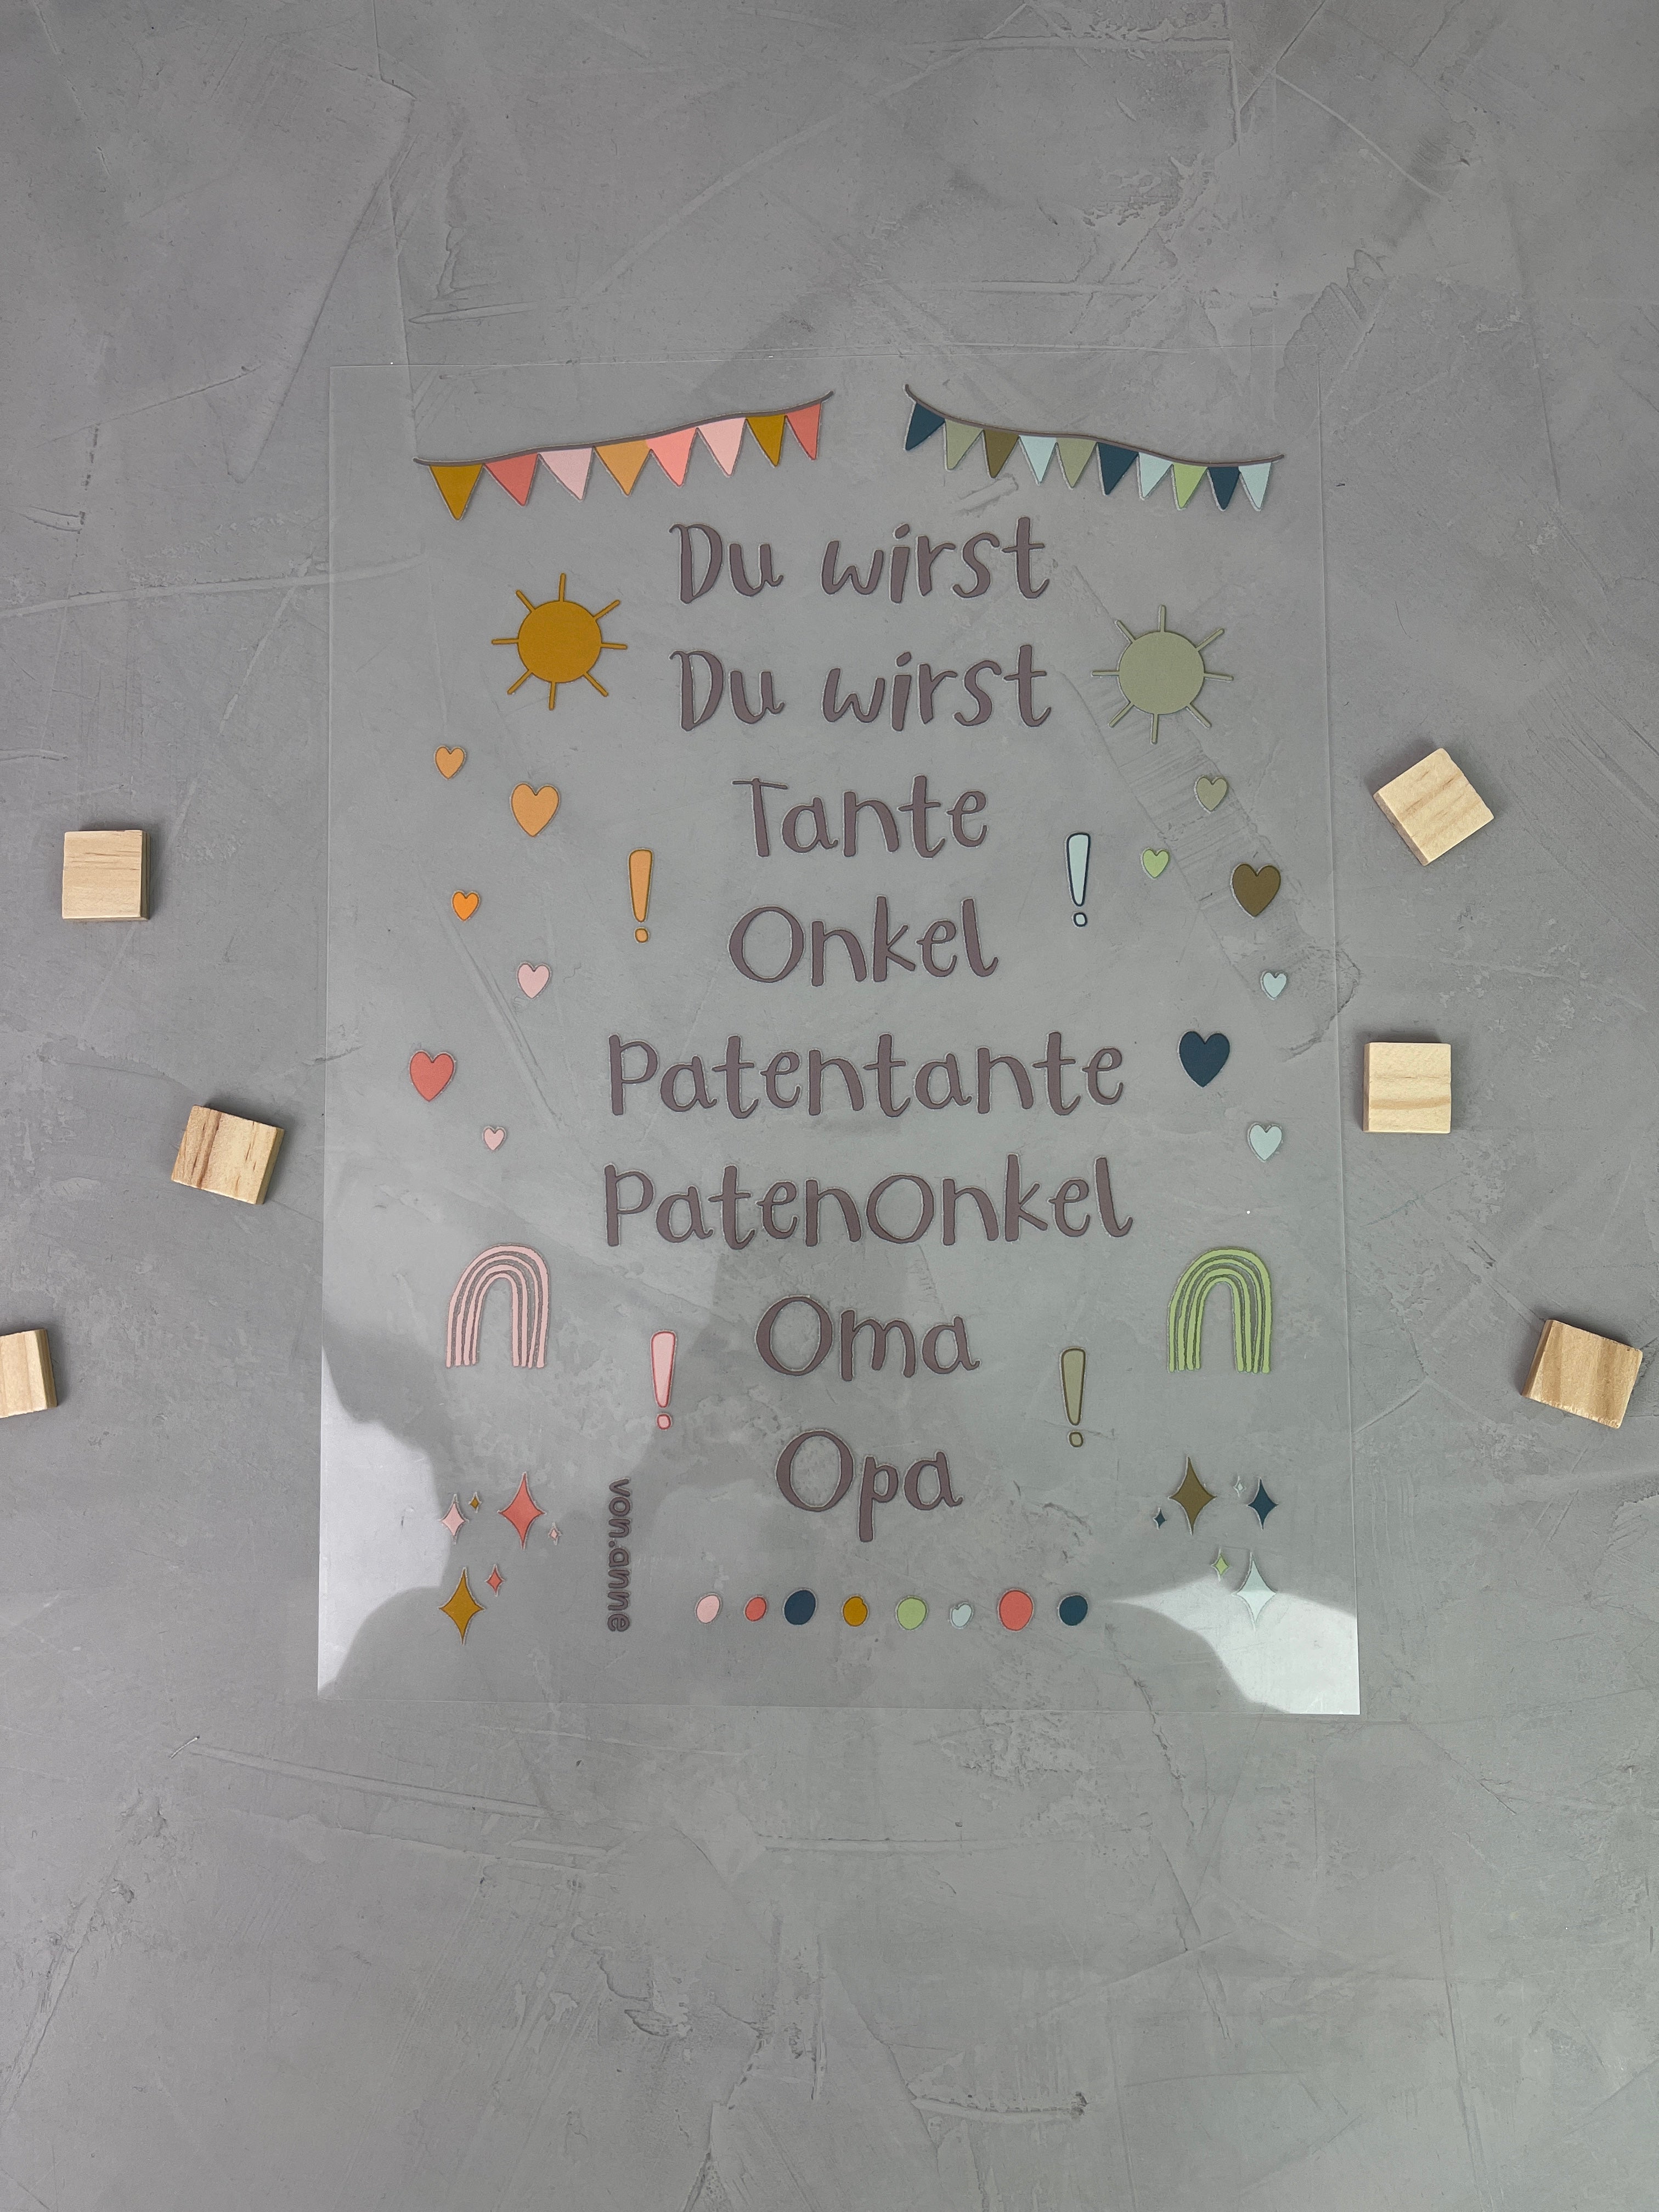 Du wirst
Du wirst
Tante
!
!
Onkel
Patentante
PatenOnkel
Oma
!
!
Opa
von.anne